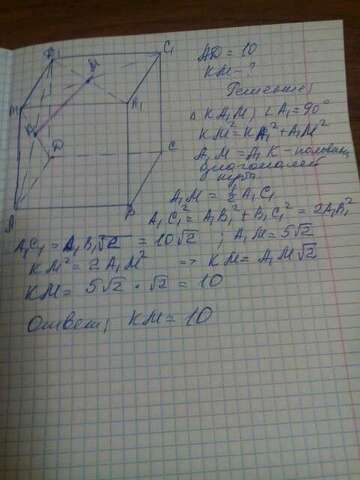 AD = 10
KM - ?
Решение:
Δ KA₁M; ∠A₁ = 90°
KM² = KA₁² + A₁M²
A₁M = A₁K - половины
диагоналей
A₁M = ½ A₁C₁
A₁C₁² = A₁B₁² + B₁C₁² = 2A₁B₁²
A₁C₁ = A₁B₁√2 = 10√2 ; A₁M = 5√2
KM² = 2A₁M² => KM = A₁M√2
KM = 5√2 · √2 = 10
Ответ: KM = 10
C₁
A₁
C
D
A
B